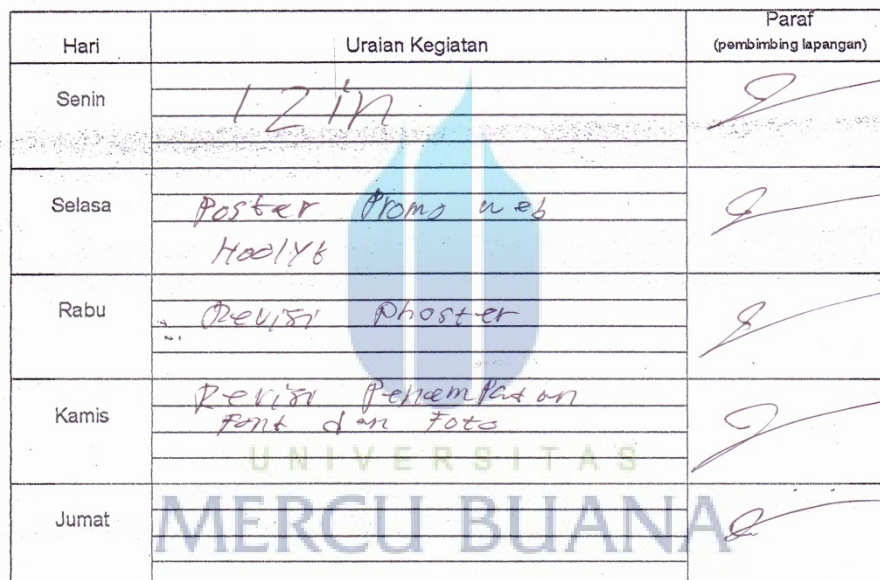 Hari Uraian Kegiatan Paraf
(pembimbing lapangan)
Senin Izin
Selasa Poster Promo web
Hoolyt
Rabu Revisi Phoster
Revisi Penempatan
Kamis Font dan Foto
UNIVERSITAS
Jumat
MERCU BUANA